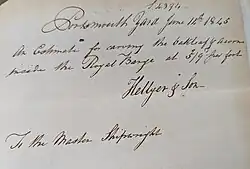 Portsmouth Yard June 10th 1845
An Estimate for carving the oakleaf & acorn
inside the Royal Barge at 5/9 per foot
Hellyer & Son
To the Master Shipwright